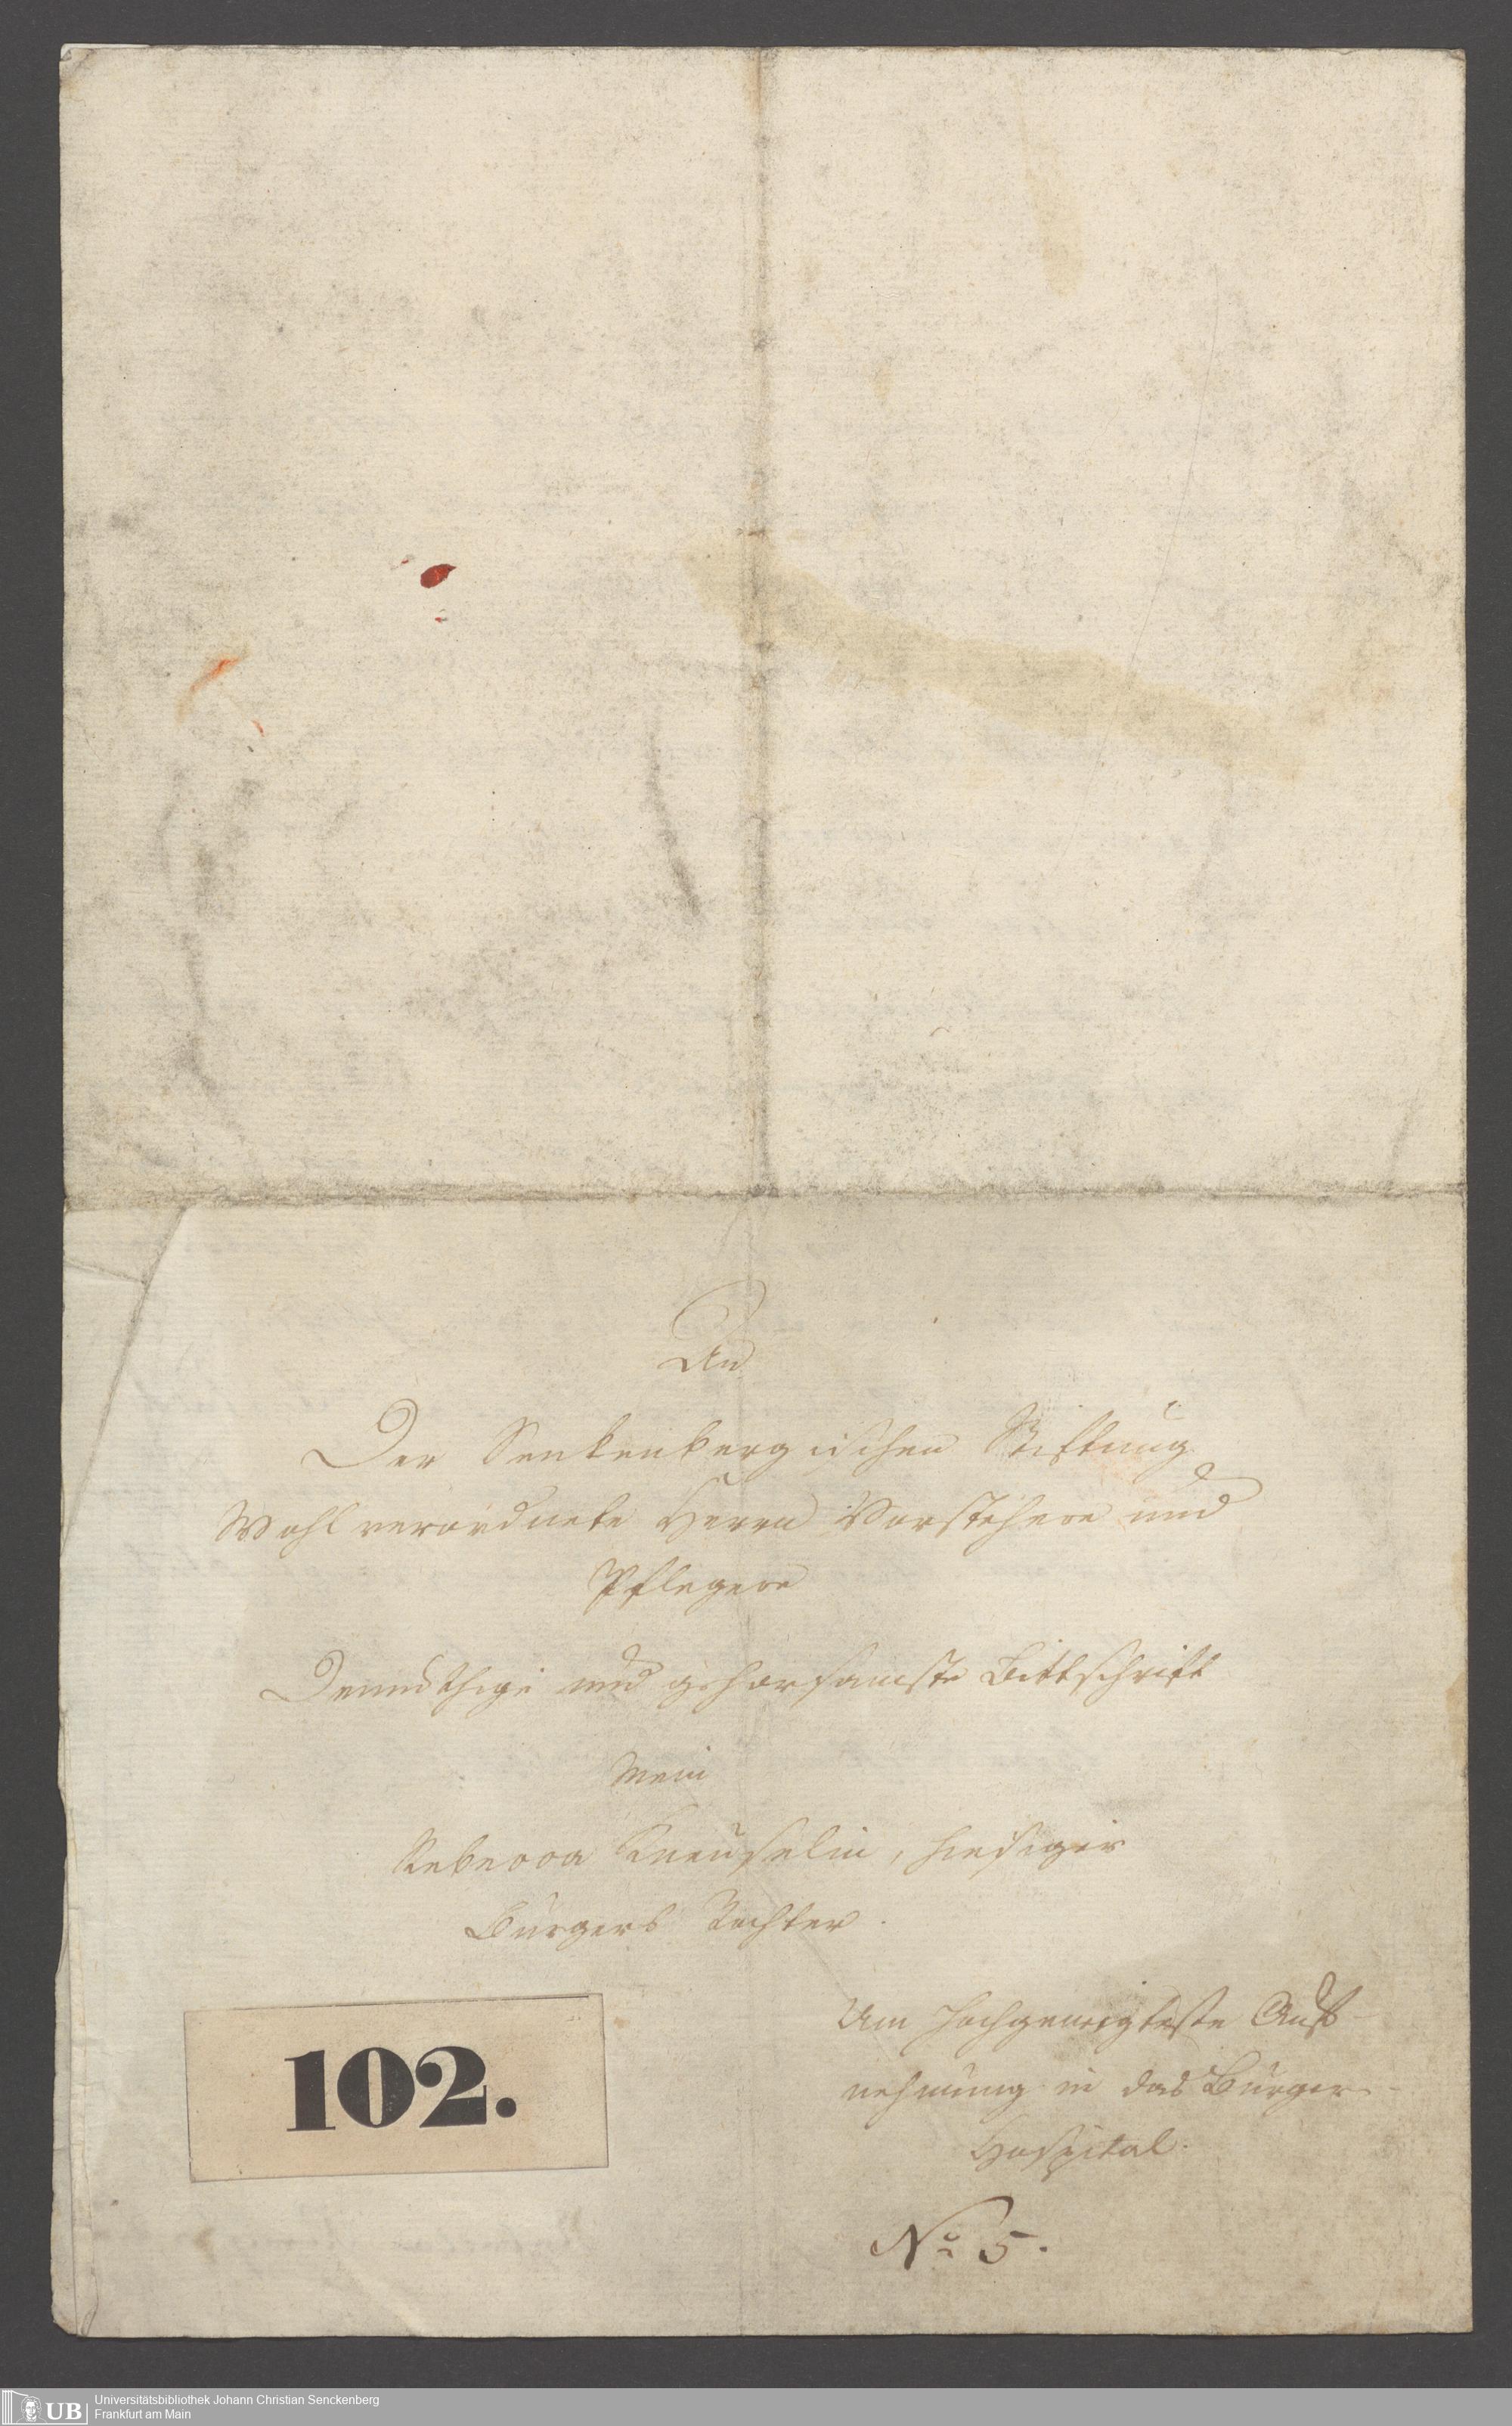 An
Der Senkenbergischen Stiftung
Wohlverordnete Herrn Vorstehere und
Pflegere
Demüthige und gehorsamste Bittschrift
Mein
Rebecca Kneuselin, hiesiger
Burgers Tochter.
Um hochgeneigteste Auf-
nehmung in das Burger-
Hospital.
102.
No 5.
UB
Universitätsbibliothek Johann Christian Senckenberg
Frankfurt am Main